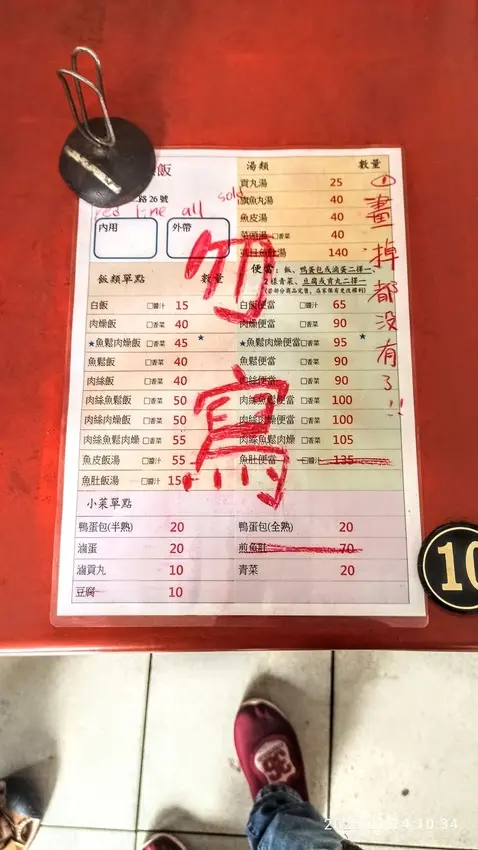 飯
路26號
red line all sold
內用
外帶
湯類 數量
貢丸湯 25
旗魚丸湯 40
魚皮湯 40
菜頭湯 □香菜 40
虱目魚肚湯 140
便當：飯、鴨蛋包或滷蛋二擇一、
2樣青菜、豆腐或貢丸二擇一
飯類單點 數量
白飯 □醬汁 15
肉燥飯 □香菜 40
★魚鬆肉燥飯 □香菜 45 ★
魚鬆飯 □香菜 40
肉絲飯 □香菜 40
肉絲魚鬆飯 □香菜 50
肉絲肉燥飯 □香菜 50
肉絲魚鬆肉燥 □香菜 55
魚皮飯湯 □醬汁 55
魚肚飯湯 □醬汁 150
白飯便當 □醬汁 65
肉燥便當 □香菜 90
★魚鬆肉燥便當 □香菜 95 ★
魚鬆便當 □香菜 90
肉絲便當 □香菜 90
肉絲魚鬆便當 □香菜 100
肉絲肉燥便當 □香菜 100
肉絲魚鬆肉燥 □香菜 105
魚肚便當 □醬汁 135
小菜單點
鴨蛋包(半熟) 20
滷蛋 20
滷貢丸 10
豆腐 10
鴨蛋包(全熟) 20
煎魚肚 70
青菜 20
勿寫
①畫掉都没有了!!
10
10:34